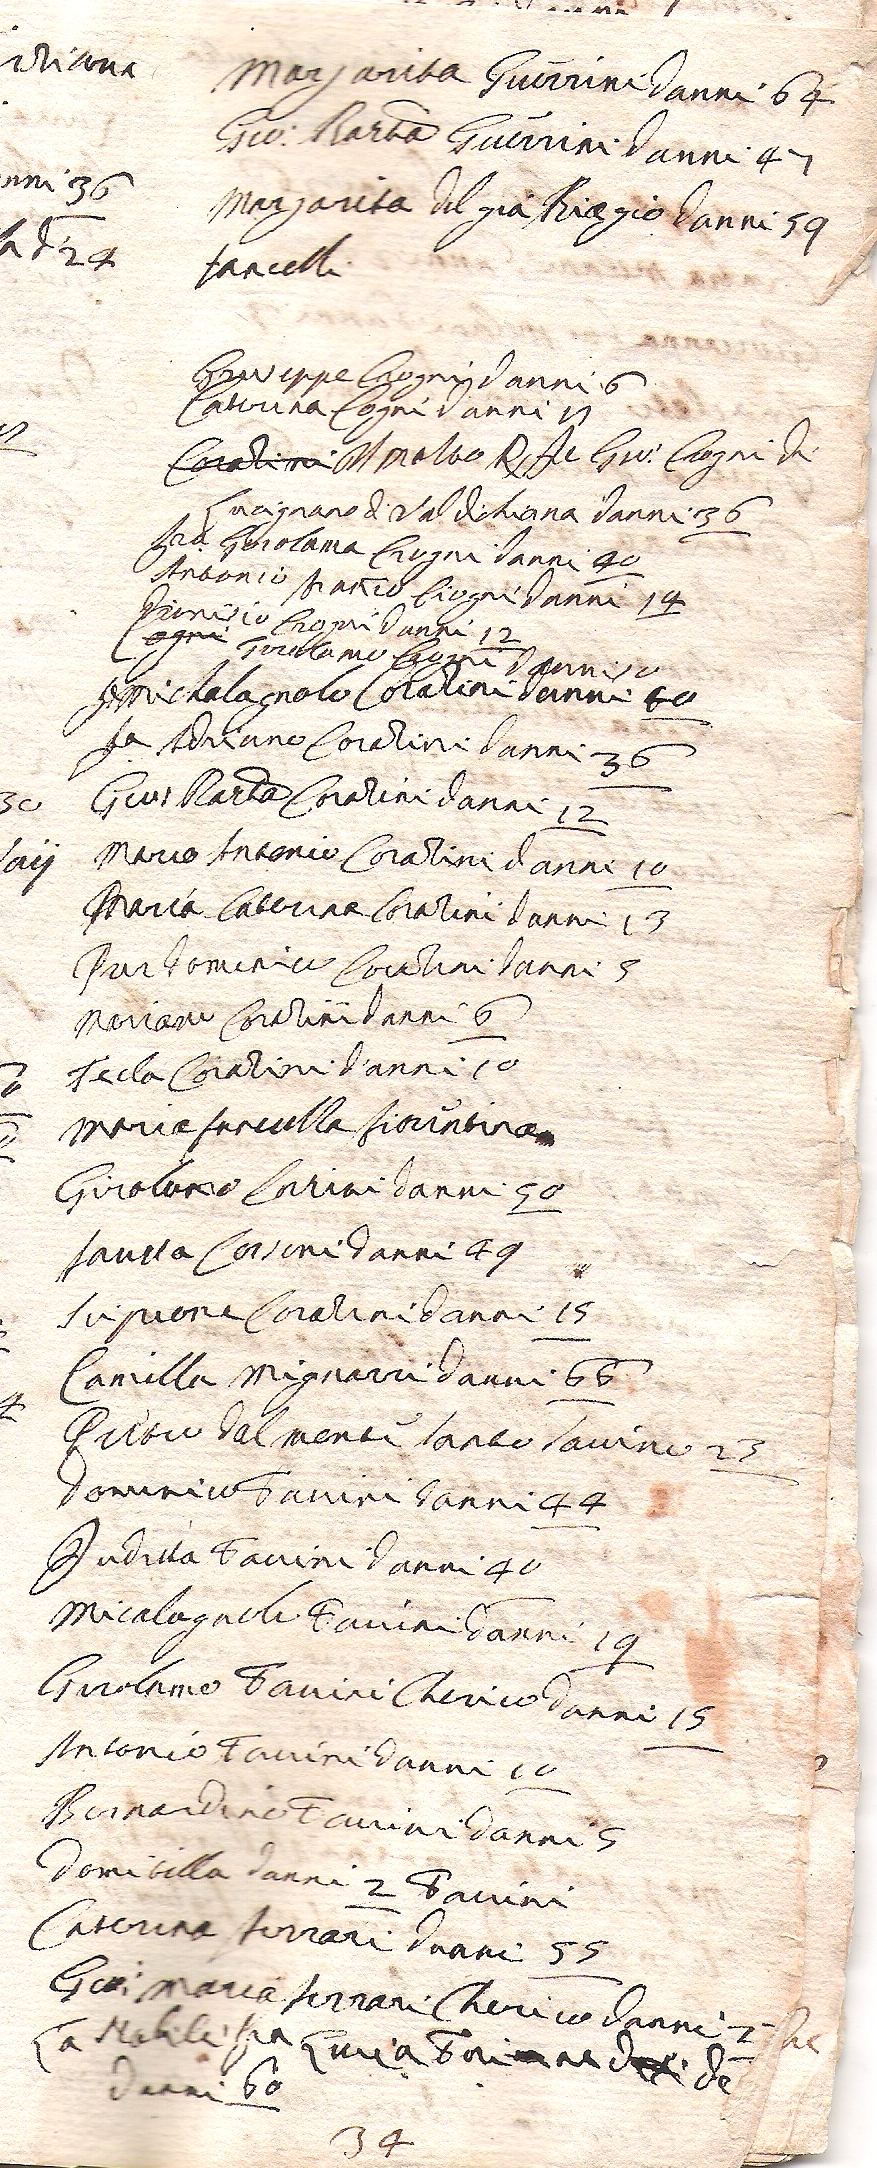 Margarita Guerrini danni 64
Gio: Batta Guerrini danni 47
Margarita del già Biagio danni 59
fancelli
Giuseppe Ciogni danni 6
Caterina Cogni danni 11
Coradini Il molto R. Sr. Gio: Ciogni di
Lucignano di Val di chiana danni 36
Sra. Girolama Ciogni danni 40
Antonio franco Ciogni danni 14
Dionisio Ciogni danni 12
Cogni Girolamo Ciogni danni 10
Sr Michalagnolo Coradini danni 60
Sra Adriana Coradini danni 36
Gio: Batta Coradini danni 12
Marco Antonio Coradini danni 10
Maria Caterina Coradini danni 13
Pier Domenico Coradini danni 5
Mariano Coradini danni 6
Tecla Coradini danni 10
Maria fanciulla fiorentina
Girolamo Corsini danni 50
Santa Corsini danni 49
Scipione Coradini danni 15
Camilla Mignarri danni 66
Pietro dal monte Santo Savino 23
Domenico Favini danni 44
Juditta Favini danni 40
Micalagnolo Favini danni 19
Girolamo Favini Cherico danni 15
Antonio Favini danni 10
Bernardino Favini danni 5
Domitilla danni 2 Favini
Caterina ferrari danni 55
Gio: Maria ferrari Cherico danni
La Nobile Sra Lucia de
danni 60
34
idiana
anni 36
la d 24
30